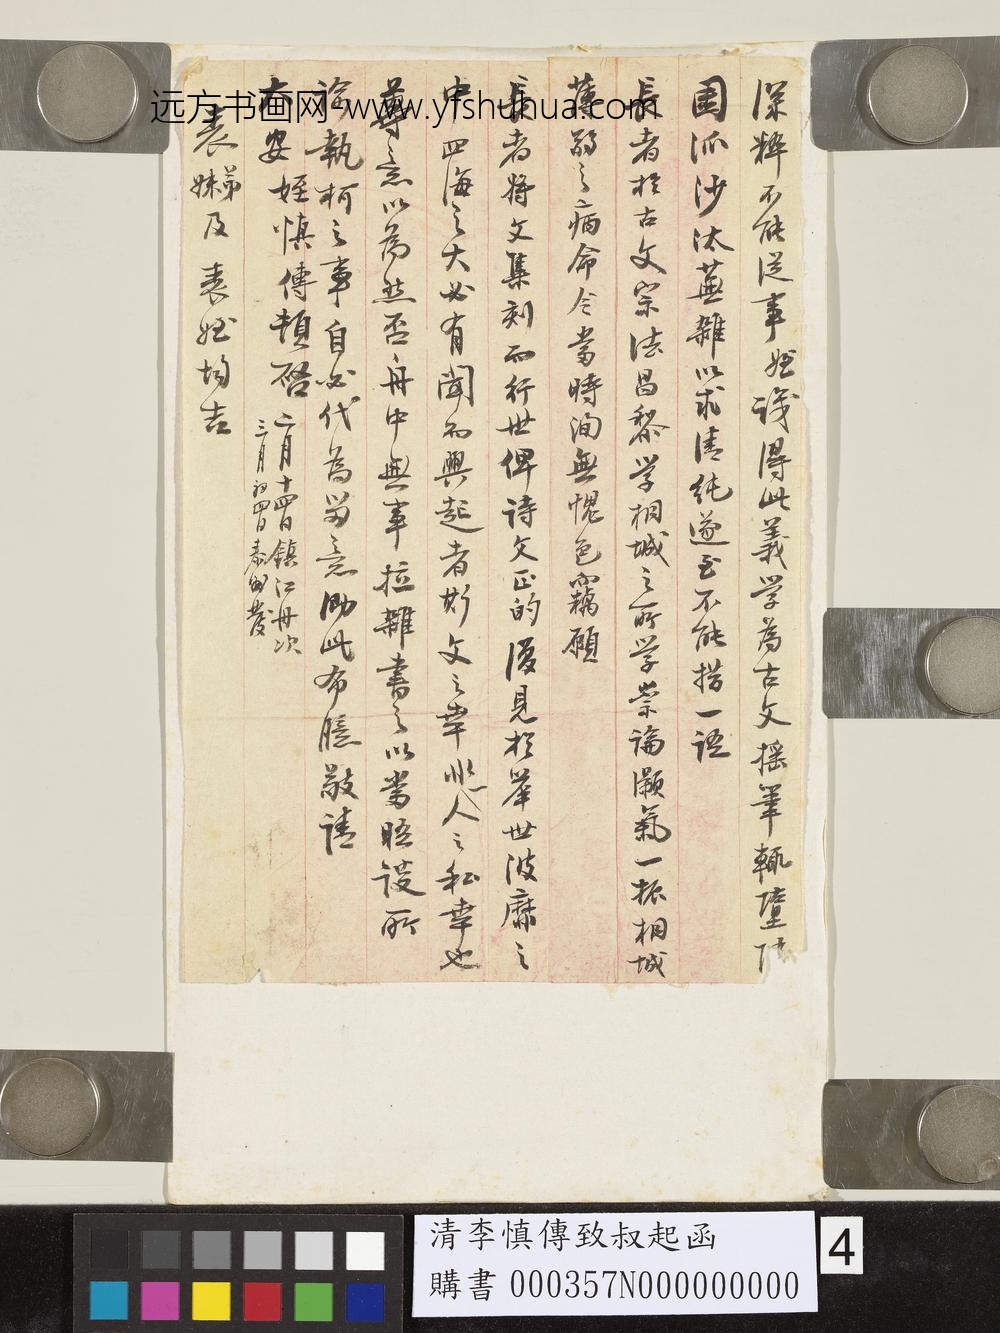 深粹不能從事姪識得此義學為古文搖筆輒墮
圍派沙汰蕪雜以求清純遂至不能措一語
長者於古文宗法昌黎學桐城之所學崇論灝氣一振桐城
薄弱之病命令當時洵無愧色竊願
長者將文集刻而行世俾詩文正的復見於舉世波靡之
中四海之大必有聞而興起者斯文之幸非人之私幸也
尊意以為然否舟中無事拉雜書之以當晤談所
執柯之事自必代為留意耑此布臆敬請
安姪慎傳頓啓
二月十四日鎮江舟次
三月初四日泰州發
表弟妹及表姪均吉
远方书画网-www.yfshuhua.com
清李慎傳致叔起函
購書000357N000000000
4